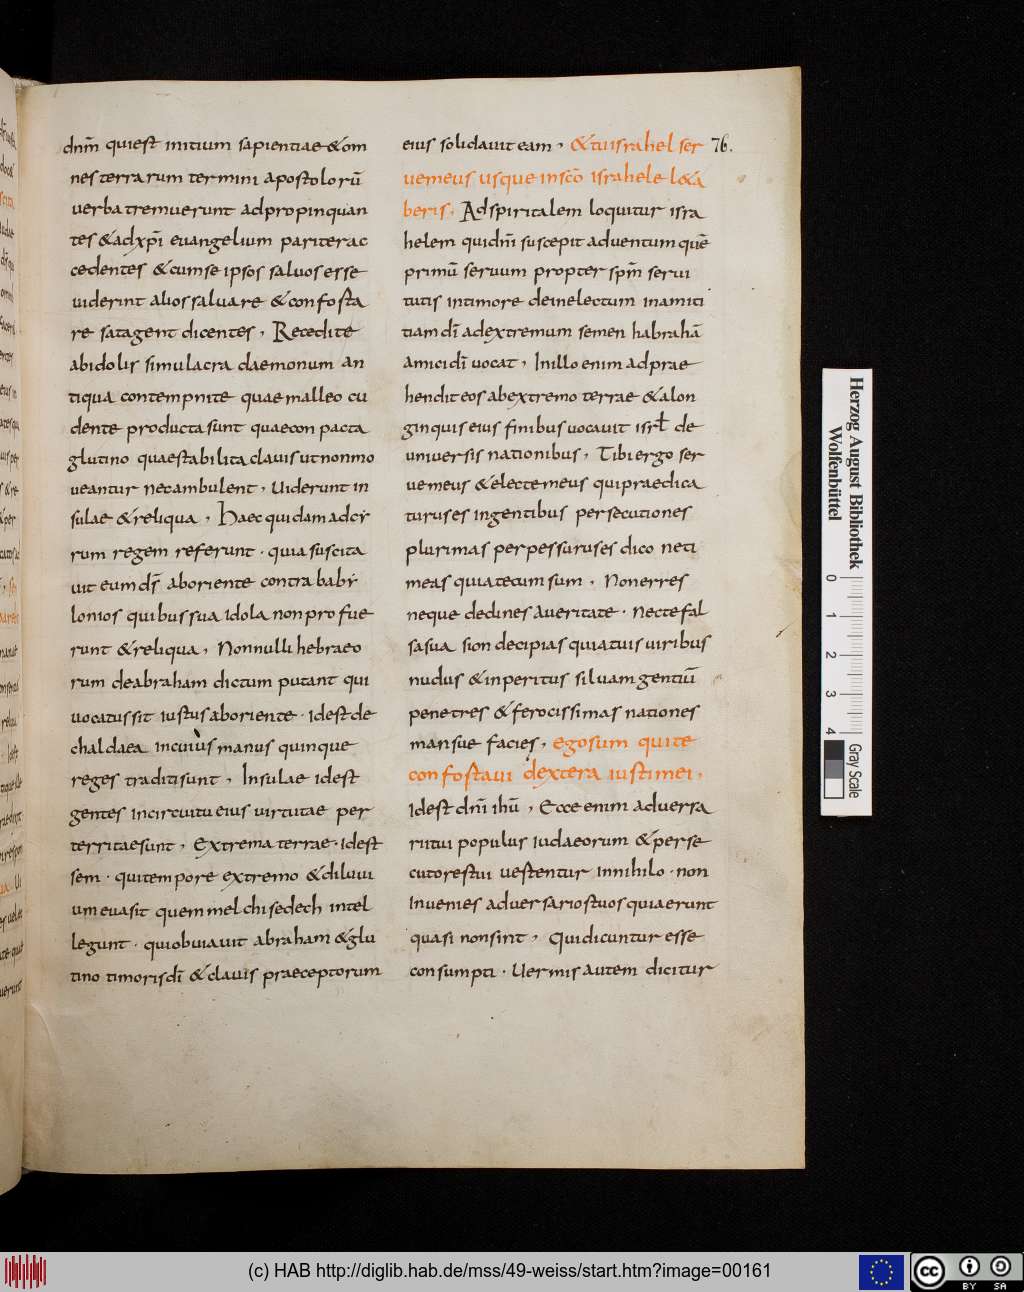 dn̄m quiest initium sapientiae & om
nes terrarum termini apostolorū
verba tremuerunt adpropinquan
tes & adxp̄i euangelium pariter ac
cedentes & cum se ipsos saluos esse
uiderint alios saluare & confosta
re satagent dicentes, Recedite
ab idolis simulacra daemonum an
tiqua contempnite quae malleo cu
dente producta sunt quae conpacta
glutino quae stabilita clauis ut non mo
ueantur nec ambulent, Uiderunt in
sulae & reliqua, Haec quidam ad cy
rum regem referunt· quia suscita
uit eum ds̄ ab oriente contra baby
lonios quibus sua idola non profue
runt & reliqua, Nonnulli hebraeo
rum de abraham dictum putant qui
uocatus sit iustus ab oriente· id est de
chaldaea in cuius manus quinque
reges traditi sunt, Insulae id est
gentes in circuitu eius uirtutae per
territae sunt, Extrema terrae· id est
sem· qui tempore extremo & diluui
um euasit quem melchisedech intel
legunt· qui obuiauit abraham & glu
tino timoris dī & clauis praeceptorum
eius solidauit eam, & tu israhel ser
ue meus usque in scō israhel el & a
beris, Ad spiritalem loquitur isra
helem qui dn̄i suscepit aduentum quē
primū seruum propter sp̄m serui
tutis in timore dein electum in amiti
tiam dī ad extremum semen habrahā
amici dī uocat, In illo enim adprae
hendit eos ab extremo terrae & a lon
ginquis eius finibus uocauit isrł de
uniuersis nationibus, Tibi ergo ser
ue meus & electe meus qui praedica
turus es in gentibus persecutiones
plurimas perpessurus es dico ne ti
meas quia tecum sum, Non erres
neque declines a ueritate· nec te fal
sa sua sion decipias quia tuis uiribus
nudus & inperitus siluam gentiū
penetres & ferocissimas nationes
mansue facies, ego sum qui te
confostaui dextera iusti mei,
id est dn̄i ih̄u, Ecce enim aduersa
rii tui populus iudaeorum & perse
cutores tui uestentur in nihilo· non
inuenies aduersarios tuos quia erunt
quasi non sint, Qui dicuntur esse
consumpti· Uermis autem dicitur
76.
Herzog August Bibliothek
Wolfenbüttel
0 1 2 3 4
Gray Scale
(c) HAB http://diglib.hab.de/mss/49-weiss/start.htm?image=00161
cc BY SA